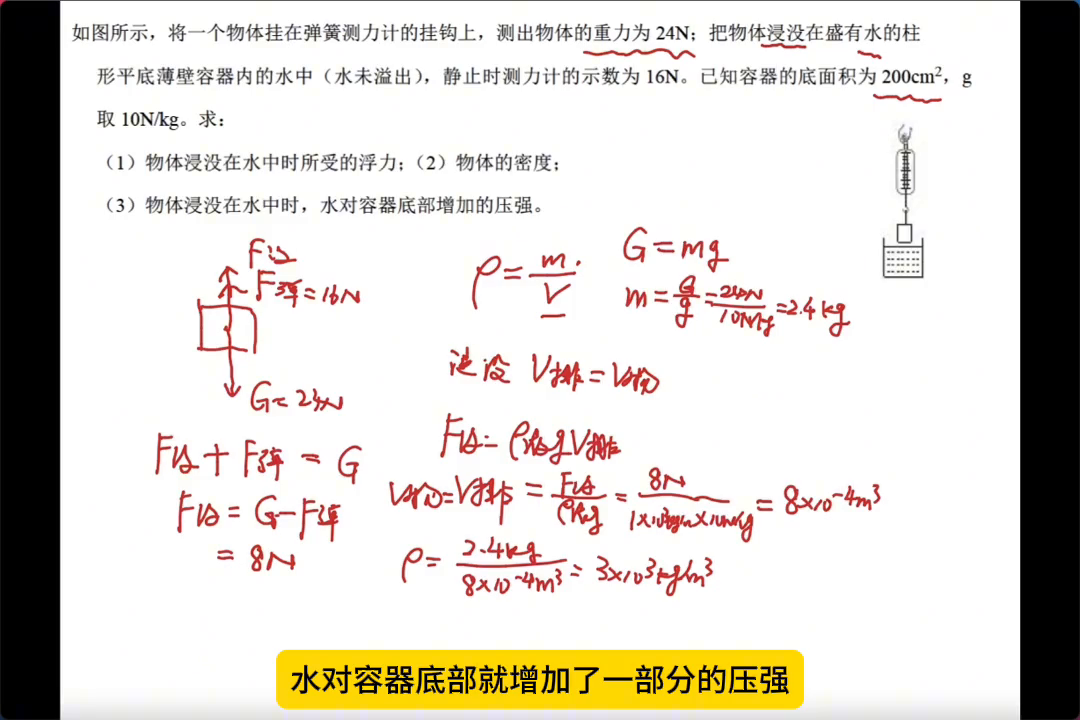 如图所示，将一个物体挂在弹簧测力计的挂钩上，测出物体的重力为 24N；把物体浸没在盛有水的柱
形平底薄壁容器内的水中（水未溢出），静止时测力计的示数为 16N。已知容器的底面积为 200cm²，g
取 10N/kg。求：
（1）物体浸没在水中时所受的浮力；（2）物体的密度；
（3）物体浸没在水中时，水对容器底部增加的压强。
F浮
F弹=16N
G=24N
F浮+F弹=G
F浮=G-F弹
=8N
G=mg
ρ=m/V
m=G/g=24N/10N/kg=2.4kg
浸没 V排=V物
F浮=ρ液gV排
V物=V排=F浮/ρ液g=8N/1×10³kg/m³×10N/kg=8×10⁻⁴m³
ρ=2.4kg/8×10⁻⁴m³=3×10³kg/m³
水对容器底部就增加了一部分的压强